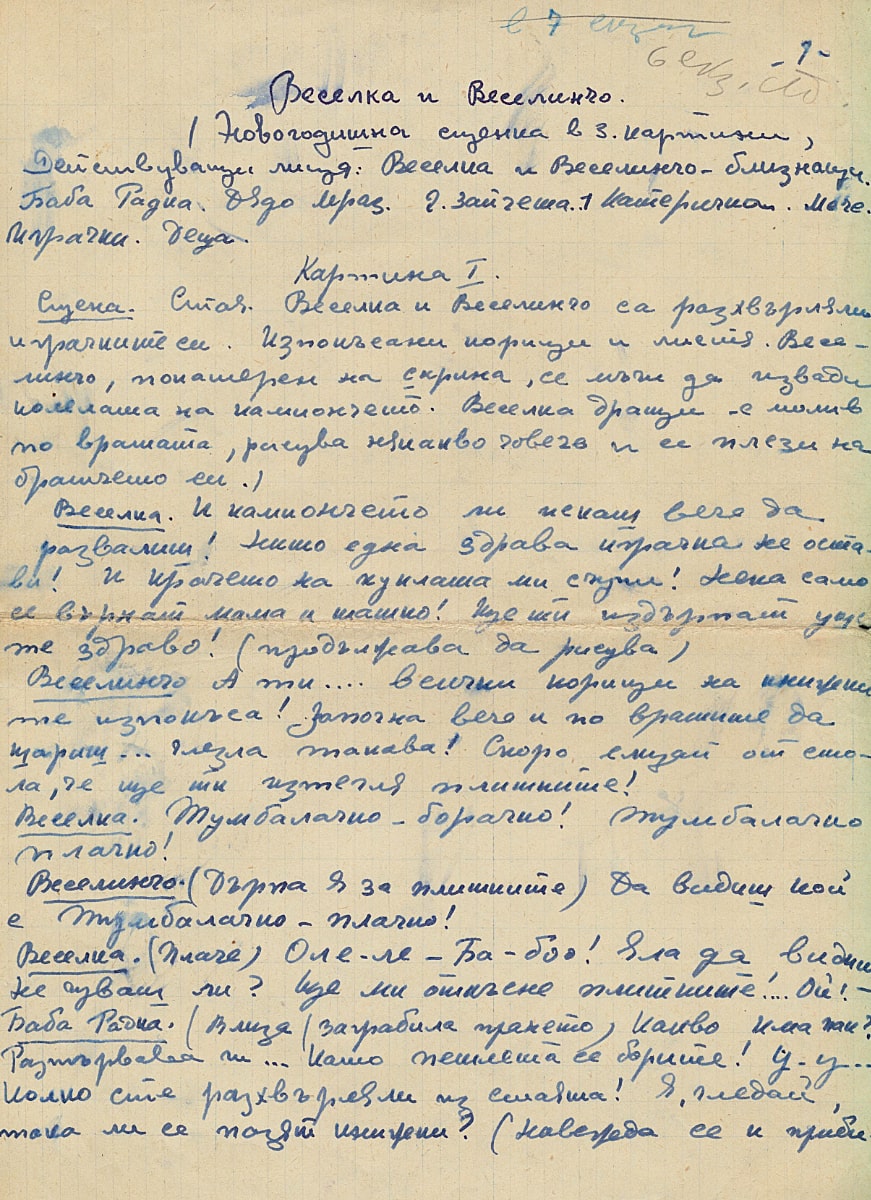 в 7 екз.
- 1 -
6 екз.
Веселка и Веселинчо.
( Новогодишна сценка в 3. картини,
Действуващи лица: Веселка и Веселинчо - близнаци.
Баба Радка. Дядо Мраз. 2. Зайчета. 1 Катеричка. Мече.
Играчки. Деца.
Картина I.
Сцена. Стая. Веселка и Веселинчо са разхвърляли
играчките си. Изпокъсани корици и листя. Весе-
линчо, покатерен на скрина, се мъчи да извади
колелата на камиончето. Веселка дращи с молив
по вратата, рисува някакво човече и се плези на
братчето си.)
Веселка. И камиончето ли искаш вече да
развалиш! Нито една здрава играчка не оста-
ви! И крачето на куклата ми счупи! Нека само
се върнат мама и татко! Ще ти издърпат уши
те здраво! (продължава да рисува)
Веселинчо А ти.... всички корици на книжки
те изпокъса! Започна вече и по вратите да
цапаш ... глезла такава! Скоро слизай от сто-
ла, че ще ти изтегля плитките!
Веселка. Тумбалачко - борачко! Тумбалачко
плачко!
Веселинчо. (Дърпа я за плитките) Да видиш кой
е Тумбалачко - плачко!
Веселка. (Плаче) Оле-ле - Ба-боо! Ела да видиш
не чуваш ли? Ще ми откъсне плитките!... Ой! -
Баба Радка. (Влиза (заграбила прането) Какво има пак?
като петлета се борите! У-у...
Колко сте разхвърляли из стаята! Я, гледай,
така ли се пазят книжки? (Навежда се и приби-